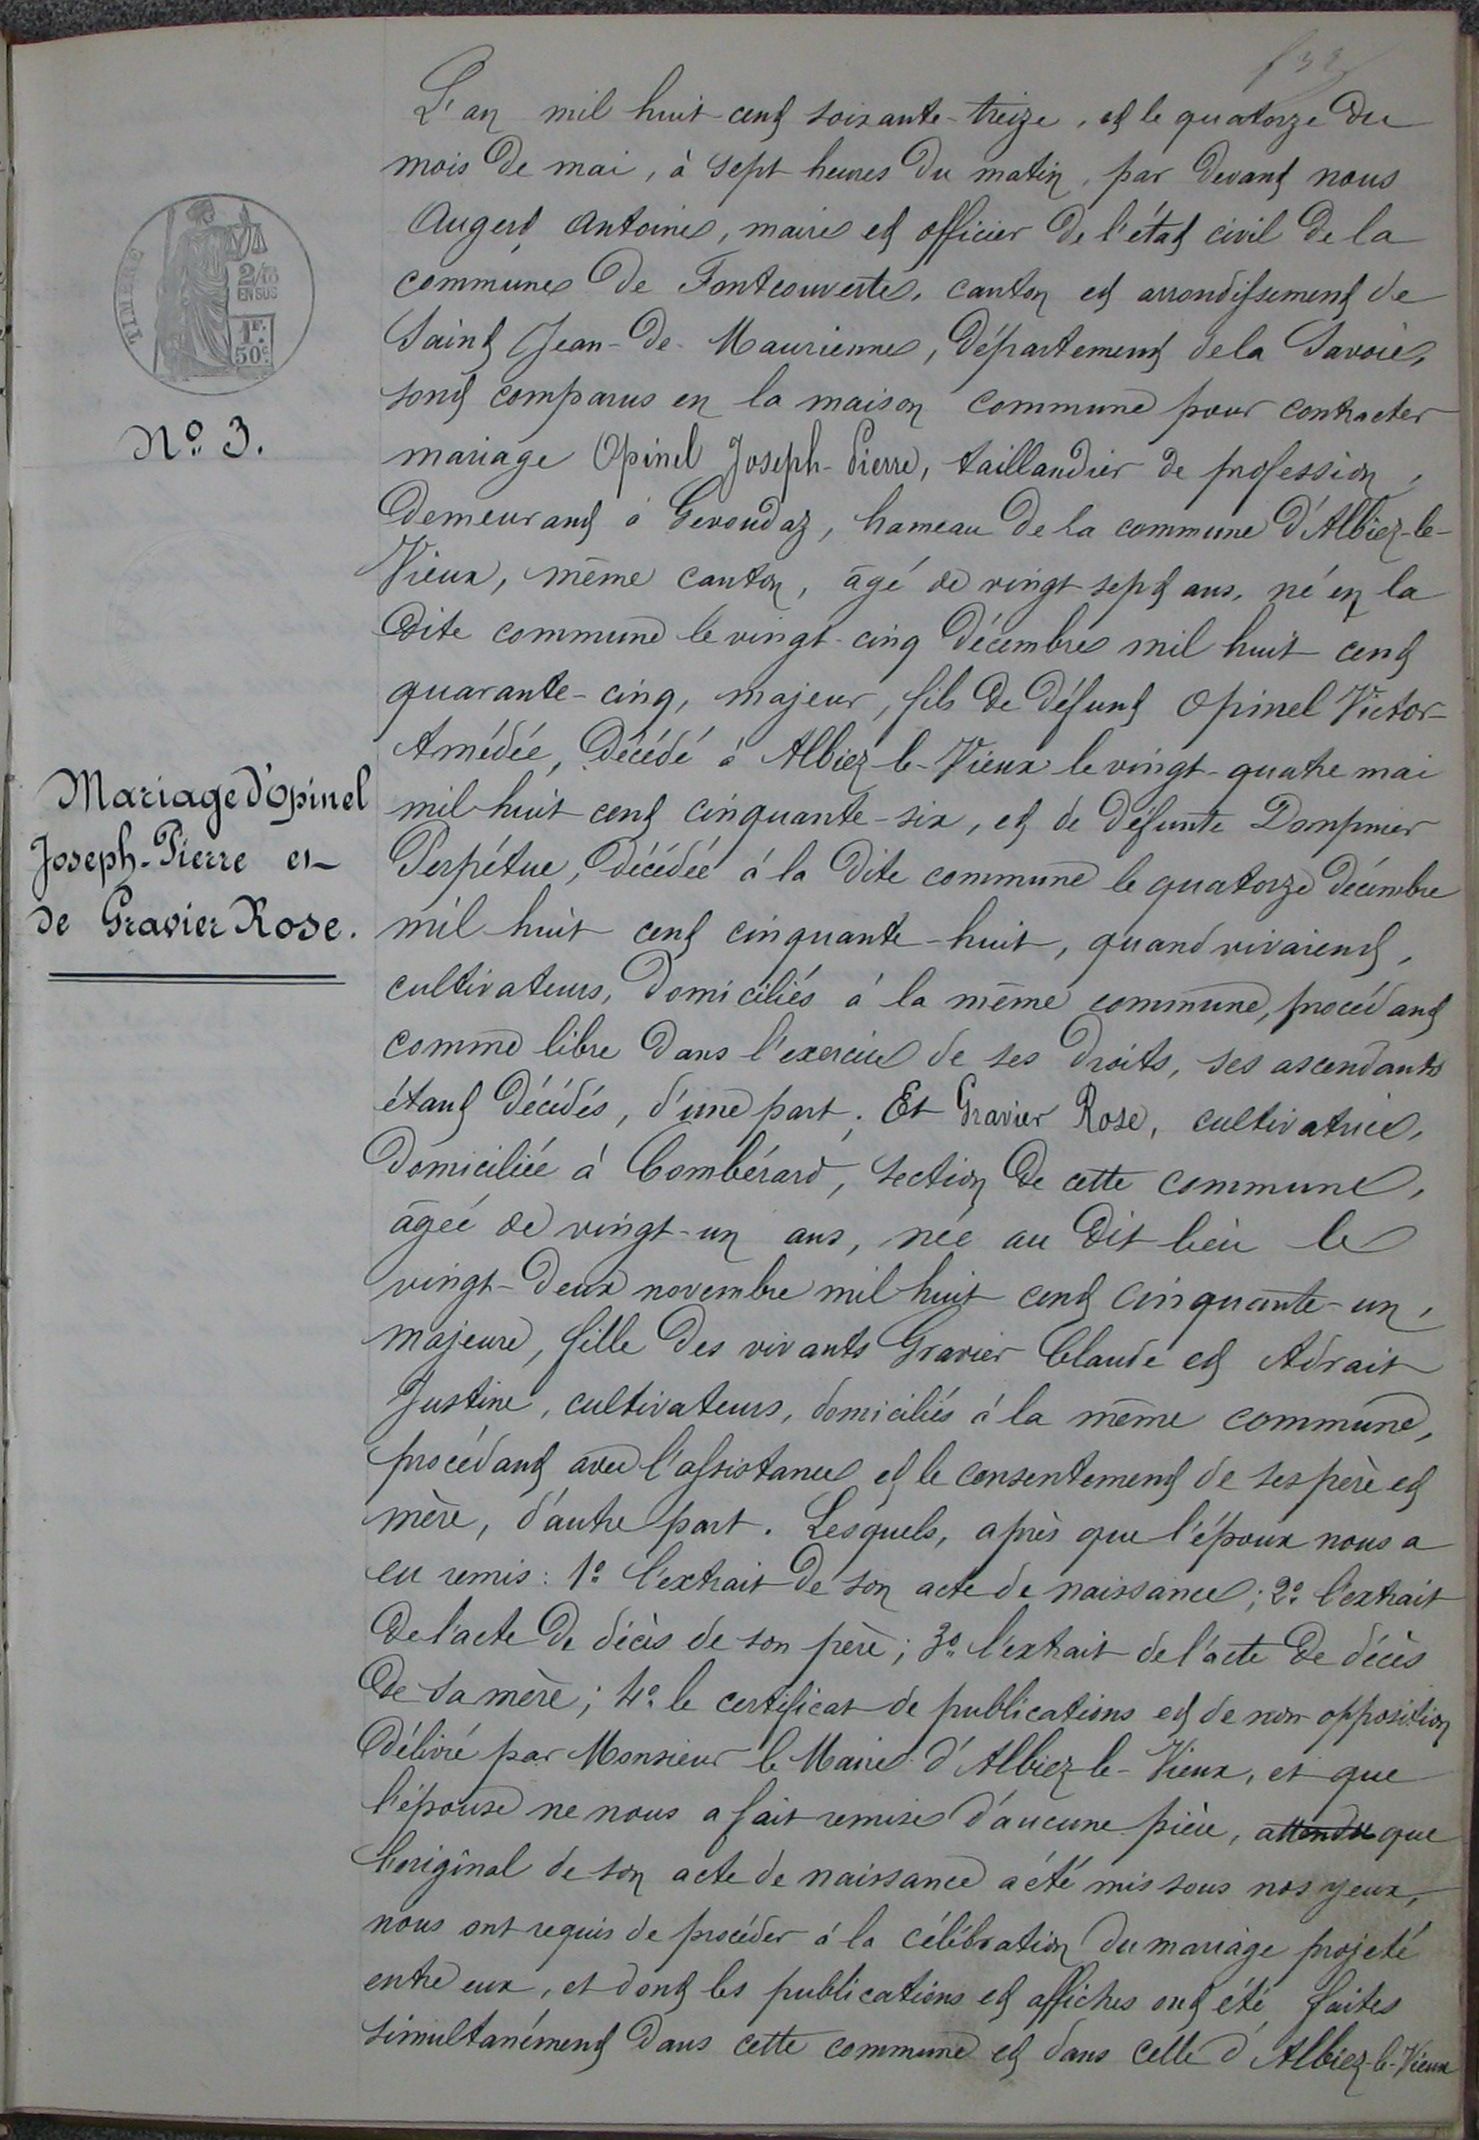 L'an mil huit-cent soixante-treize, et le quatorze du
mois de mai, à sept heures du matin, par devant nous
Augert Antoine, maire et officier de l'état civil de la
commune de Fontcouverte, canton et arrondissement de
Saint Jean-de-Maurienne, département de la Savoie,
sont comparus en la maison commune pour contracter
mariage Opinel Joseph-Pierre, taillandier de profession,
demeurant à Gevoudaz, hameau de la commune d'Albiez-le-
Vieux, même canton, âgé de vingt sept ans, né en la
dite commune le vingt-cinq décembre mil huit cent
quarante-cinq, majeur, fils de défunt Opinel Victor-
Amédée, décédé à Albiez-le-Vieux le vingt-quatre mai
mil huit cent cinquante-six, et de défunte Dompnier
Perpétue, décédée à la dite commune le quatorze décembre
mil huit cent cinquante-huit, quand vivaient,
cultivateurs, domiciliés à la même commune, procédant
comme libre dans l'exercice de ses droits, ses ascendants
étant décédés, d'une part; Et Gravier Rose, cultivatrice,
domiciliée à Combérard, section de cette commune,
âgée de vingt-un ans, née au dit lieu le
vingt-deux novembre mil huit cent cinquante-un,
majeure, fille des vivants Gravier Claude et Adrait
Justine, cultivateurs, domiciliés à la même commune,
procédant avec l'assistance et le consentement de ses père et
mère, d'autre part. Lesquels, après que l'époux nous a
eu remis: 1º l'extrait de son acte de naissance; 2º l'extrait
de l'acte de décès de son père; 3º l'extrait de l'acte de décès
de sa mère; 4º le certificat de publications et de non opposition
délivré par Monsieur le Maire d'Albiez-le-Vieux, et que
l'épouse ne nous a fait remise d'aucune pièce, attendu que
l'original de son acte de naissance a été mis sous nos yeux,
nous ont requis de procéder à la célébration du mariage projeté
entre eux, et dont les publications et affiches ont été faites
simultanément dans cette commune et dans celle d'Albiez-le-Vieux
TIMBRE
2/10
EN SUS
1F.
50c
Nº 3.
Mariage d'Opinel
Joseph-Pierre et
de Gravier Rose.